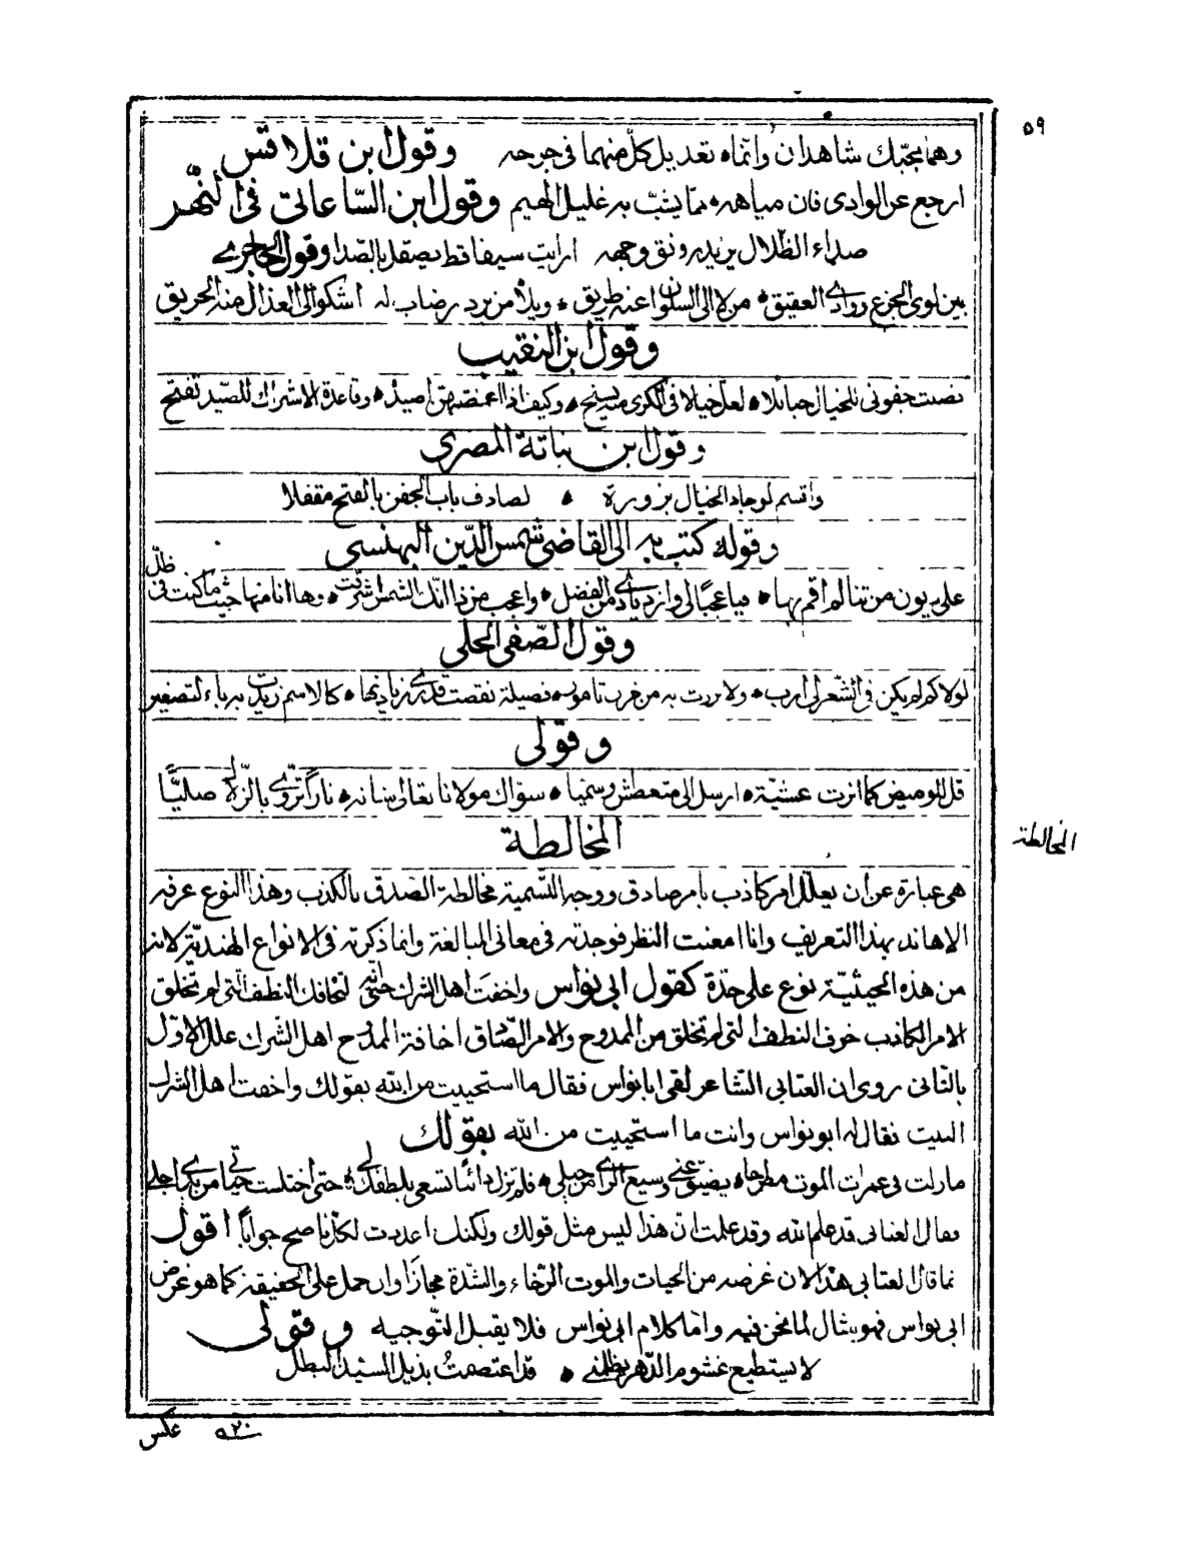 ٥٩
وهما بحبّك شاهدان وانّما ه تعديل كلّ منهما فى جرحه وقول ابن قلاقس
ارجع عن الوادى فان مياهه ه غليل الهيم وقول ابن السّاعاتى فى النّهر
صداء الظّلال يزيد رونق وجهه ارايت سيفا قط يصقل بالصّدا وقول الحاجرى
بين لوى الجزع ووادى العقيق ه من لا الى السلوان عنه طريق ه ويلا من برد رضاب له اشكو الى العذال منه الحريق
وقول ابن النقيب
نصبت جفونى للخيال حبائلا ه لعلّ خيالا فى الكرى منه يسنح ه وكيف اذا اغمضتهن اصيده ه وقاعدة الاشراك للصّيد تفتح
وقول ابن نباتة المصرى
واقسم لو جاد الخيال بزورة ه لصادف باب الجفن بالفتح مقفلا
وقوله كتب به الى القاضى شمس الدّين البهنسى
علىّ ديون من ثنا لم اقم بها ه فيا عجبًا لى وازديادى من الفضل ه واعجب من ذا انك الشمس اشرقت ه وها انا منها حيث ما كنت فى ظلّ
وقول الصّفى الحلى
لولاكم لم يكن فى الشّعر لى ارب ه ولا بررت به من غرب تاموره فضيلة نقصت قدرى زيادتها ه كالاسم زيدت به ياء لتصغير
وقولى
قل للوميض كما انرت عشيّة ه ارسل الى متعطش وسميا ه سؤال مولانا تعالى شانه ه نارًا تروّى بالزّلال صليّا
المخالطة
المخالطة
هى عبارة عن ان يعلّل امر كاذب بامر صادق ووجه التّسمية مخالطة الصّدق بالكذب وهذا النوع عرفه
الاهاند بهذا التعريف وانا امعنت النظر فوجدته فى معانى المبالغة وانما ذكرته فى الانواع الهنديّة لانه
من هذه الحيثيّة نوع على حدة كقول ابى نواس واخفت اهل الشرك حتى انّه لتخافك النطف التى لم تخلق
الامر الكاذب خوف النطف التى لم تخلق من الممدوح والامر الصّادق اخافة الممدوح اهل الشّرك علل الاوّل
بالثانى روى ان العتابى الشاعر لقى ابا نواس فقال ما استحييت من الله بقولك واخفت اهل الشرك
البيت فقال له ابو نواس وانت ما استحييت من الله بقولك
مازلت فى غمرات الموت مطرحا ه يضيق عنى وسيع الراى من حيلى ه فلم تزل دائبا تسعى بلطفك لى ه حتى اختلست حياتى من يدى اجلى
فقال العتابى قد علم الله وقد علمت ان هذا ليس مثل قولك ولكنك اعددت لكل ناصح جوابًا اقول
ما قال العتابى هذا لان غرضه من الحيات والموت الرّخاء والشّدة مجازًا وان حمل على الحقيقة كما هو غرض
ابى نواس فهو مثال لما نحن فيه وامّا كلام ابى نواس فلا يقبل التّوجيه وقولى
لا يستطيع غشوم الدّهر يظلمنى ه قد اعتصمتُ بذيل السيّد البطل
عكس